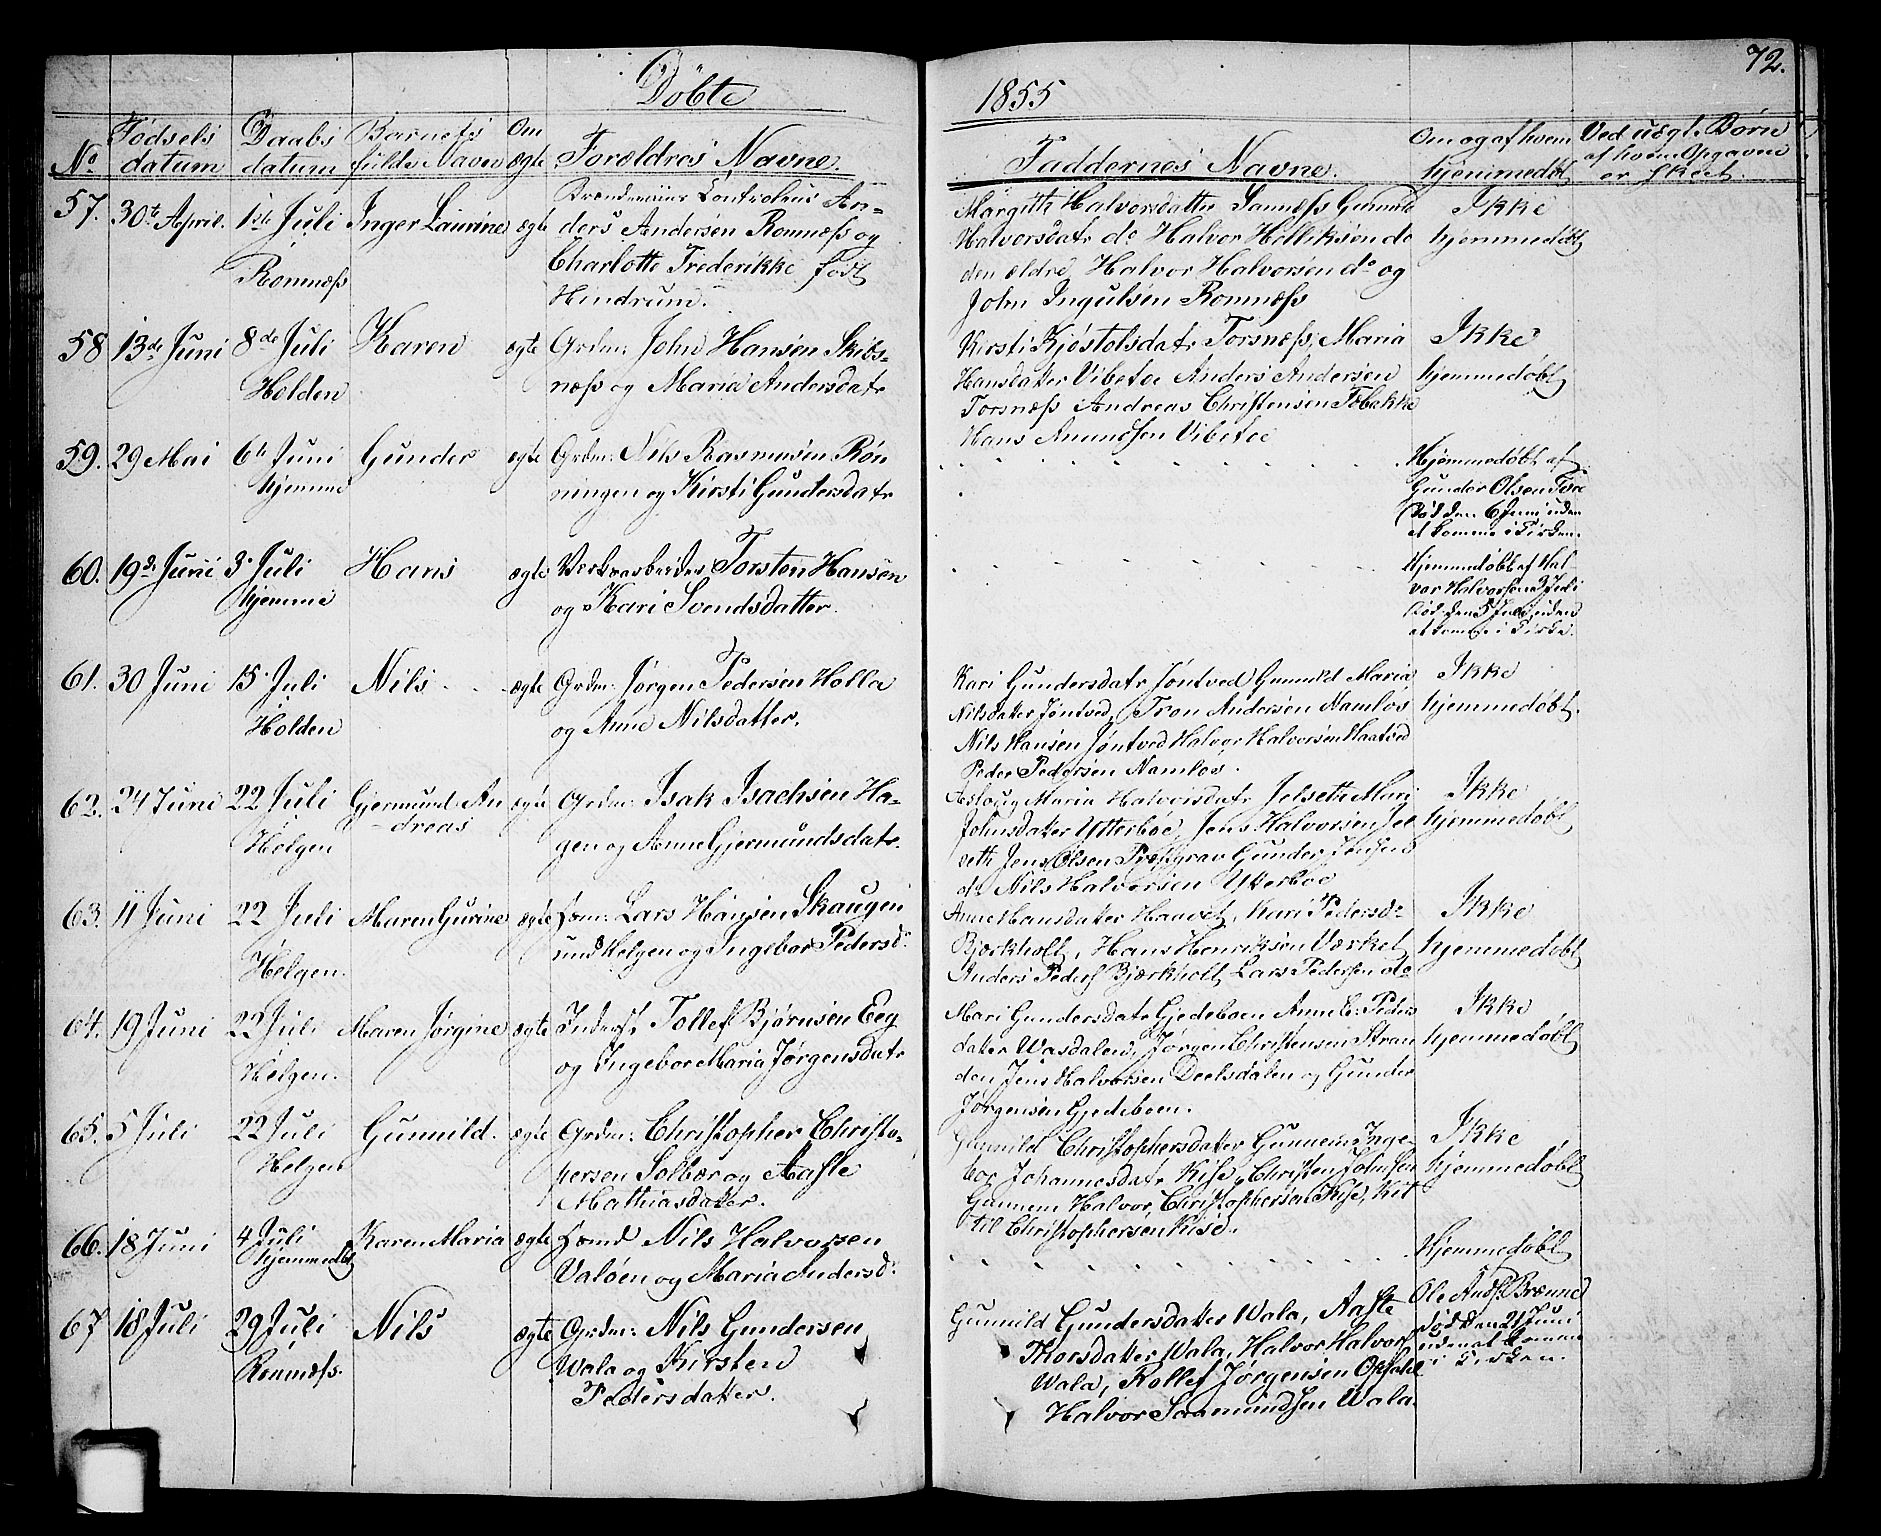 Döbte
1855
72.
No
Fødsels datum
Daabs datum
Barnets fulde Navn
Om ægte
Forældres Navne.
Faddernes Navne.
Om og af hvem hjemmedøbt
Ved uægte Børn af hvem Opgaven er skeet.
57. 30te April. 1ste Juli Inger Laurine ægte Controleur An-
Romnæss ders Andersen Romnæss og
Charlotte Frederikke født
Hindrum.
Margith Halvorsdatter Sannæss Gunnild
Halvorsdatr do Halvor Helliksen do
den ældre Halvor Halvorsen do og
John Ingulsen Romnæss
Ikke
hjemmedøbt
58 13de Juni 8de Juli Karen ægte Grdm: John Hansen Skibs-
Holden næss og Maria Andersdatr
Kirsti Kjøstolsdatr Torsnæss, Maria
Hansdatter Vibetoe Anders Andersen
Torsnæss Andreas Christensen Tobakke
Hans Amundsen Vibetoe
Ikke
hjemmedøbt
59. 29 Mai 6te Juni Gunder ægte Grdm: Nils Rasmusen Røn
hjemme ningen og Kirsti Gundersdatr
Hjemmedøbt af
Gunder Olsen
Død den 6 Juni uden
at komme i Kirken.
60. 19de Juni 3. Juli Hans ægte Verksarbeider Torsten Hansen
hjemme og Kari Svendsdatter.
Hjemmedøbt af Hal-
vor Halvorsen 3 Juli
Død den 5 Juli uden
at komme i Kirke.
61. 30 Juni 15. Juli Nils ægte Grdm: Jørgen Pedersen Holla
Holden og Anne Nilsdatter.
Kari Gundersdatr Jøntved Gunnild Maria
Nilsdatter Jøntved, Tron Andersen Namlos
Nils Hansen Jøntved Halvor Halvorsen Haatved
Peder Pedersen Namlos.
Ikke
hjemmedøbt.
62. 24 Juni 22 Juli Gjermund An ægte Grdm: Isak Isachsen Ha-
Helgen dreas gen og Anne Gjermundsdatr.
Aslaug Maria Halvorsdatr Jelseth Mari
Johnsdatter Ytterböe, Jens Halvorsen Jel
seth Jens Olsen Præstgrav Gunder Jensen
do Nils Halvorsen Ytterböe
Ikke
hjemmedøbt
63. 11 Juni 22 Juli Maren Gurine ægte Lars Hansen Skaugen
Helgen. und Helgen og Ingebor Pedersdr
Anne Hansdatter Haavet, Kari Pedersdr
Bjørkholt, Hans Henriksen Værket,
Anders Peders Bjørkholt Lars Pedersen do
Ikke
hjemmedøbt
64. 19 Juni 22 Juli Maren Jørgine ægte Inderst Tollef Bjørnsen Eeg
Helgen. og Ingebor Maria Jørgensdatr
Mari Gundersdatr Gjedeboen Anne E. Peders
datter Wasdalen, Jørgen Christensen Stran
den Jens Halvorsen Deelsdalen og Gunder
Jørgensen Gjedeboen.
Ikke
hjemmedøbt
65. 5 Juli 22 Juli Gunnild. ægte Grdm: Christopher Christo-
Helgen phersen Solbær og Aasle
Mathiasdatter.
Gunnild Christophersdatter Gunnem, Inge-
bor Johannesdatr Kise, Christen Johnsen
Gunnem Halvor Christophersen Kise, Kit
til Christophersen Kise.
Ikke
hjemmedøbt
66. 18 Juni 4 Juli Karen Maria ægte Nils Halvorsen
hjemmedøbt Valöen og Maria Andersdr
Hjemmedøbt
Ole Brænne
Død den 21 Juni
uden at komme
i Kirken.
67 18 Juli 29 Juli Nils ægte Grdm: Nils Gundersen
Romnæss. Wala og Kirsten
Pedersdatter.
Gunnild Gundersdatter Wala, Aaste
Thorsdatter Wala, Halvor Halvors
Wala, Rollef Jørgensen Opsahl
Halvor Saamundsen Wala.